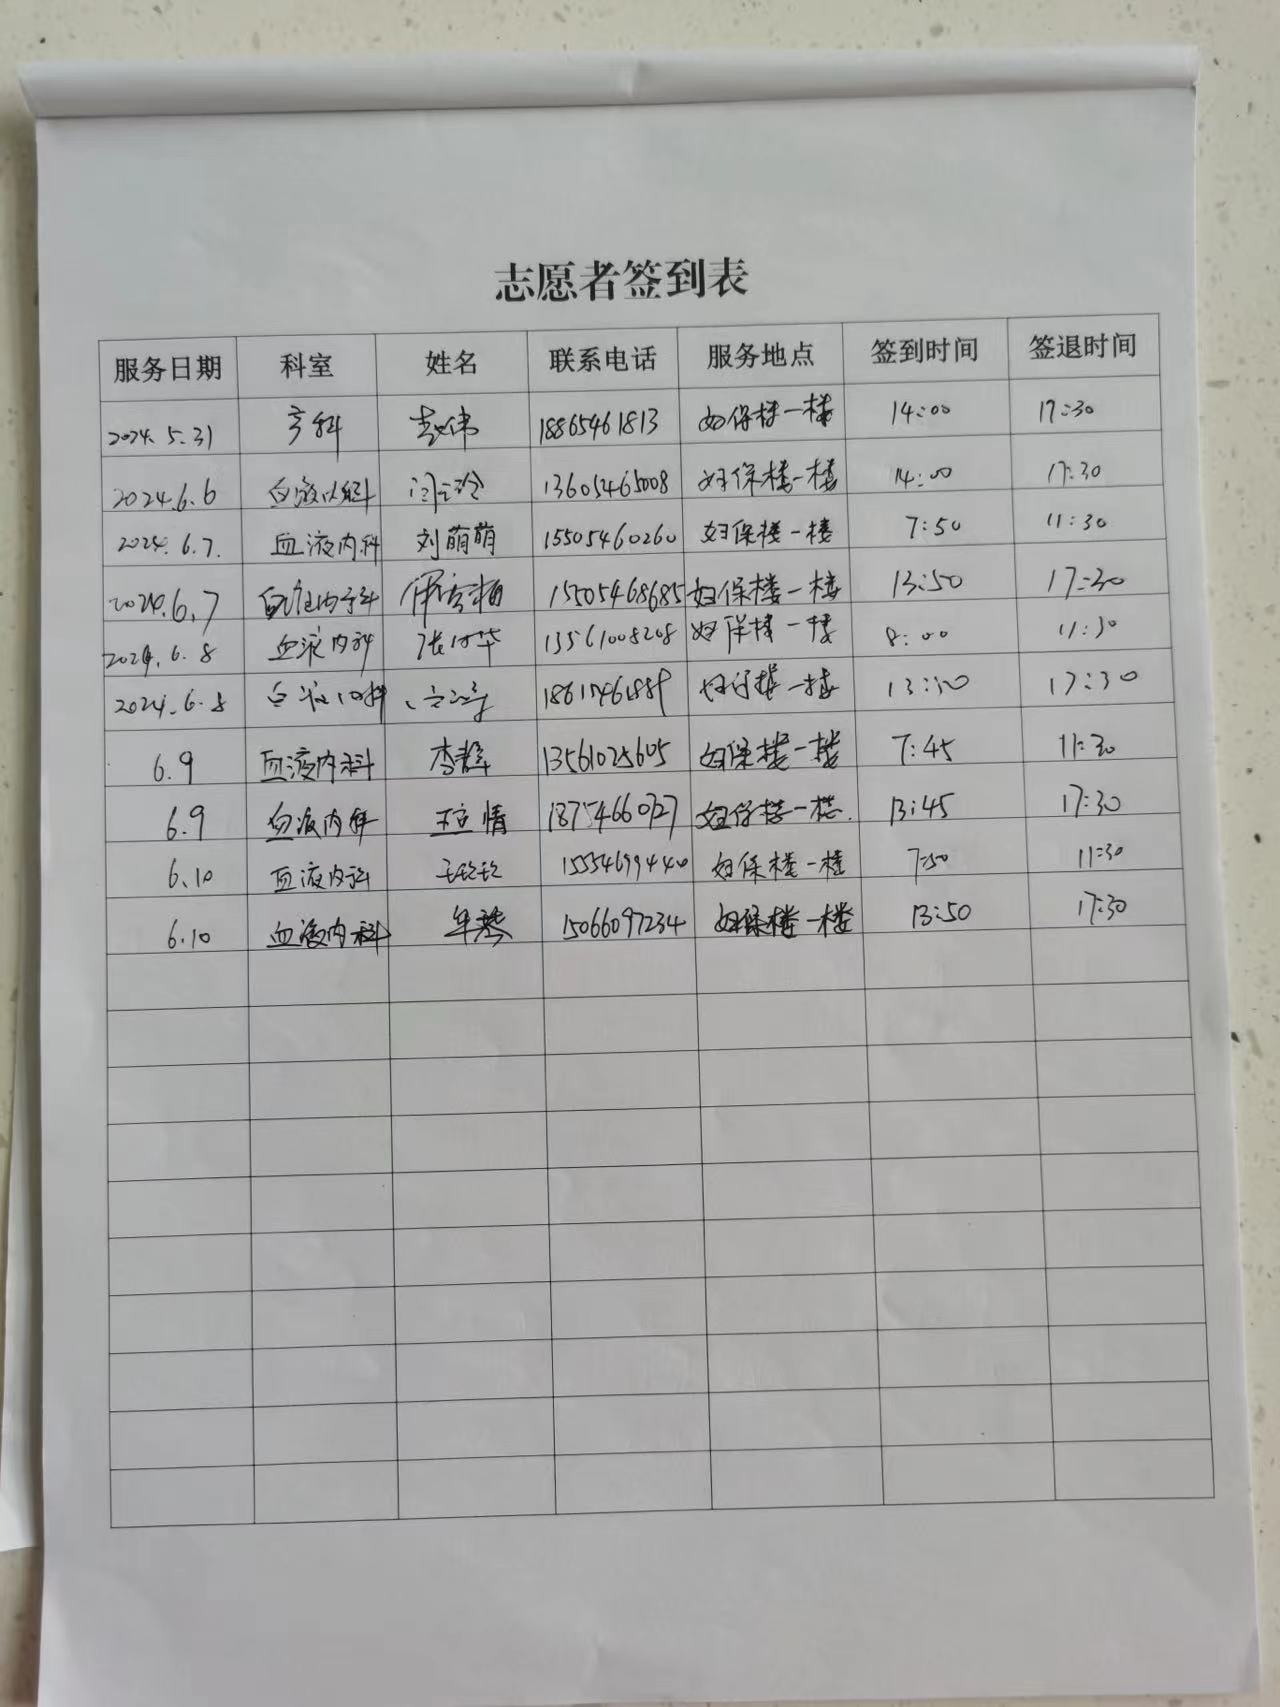 志愿者签到表
服务日期 科室 姓名 联系电话 服务地点 签到时间 签退时间
2024.5.31 产科 18865461813 妇保楼一楼 14:00 17:30
2024.6.6 血液内科 13605465008 妇保楼一楼 14:00 17:30
2024.6.7. 血液内科 刘萌萌 15505460260 妇保楼一楼 7:50 11:30
2024.6.7 血液内科 15505468685 妇保楼一楼 13:50 17:30
2024.6.8 血液内科 13561008208 妇保楼一楼 8:00 11:30
2024.6.8 血液内科 妇保楼一楼 17:30
6.9 血液内科 李静 13561025605 妇保楼一楼 7:45 11:30
6.9 血液内科 妇保楼一楼. 13:45 17:30
6.10 血液内科 15554699440 妇保楼一楼 7:50 11:30
6.10 血液内科 牟琴 15066097234 妇保楼一楼 13:50 17:30